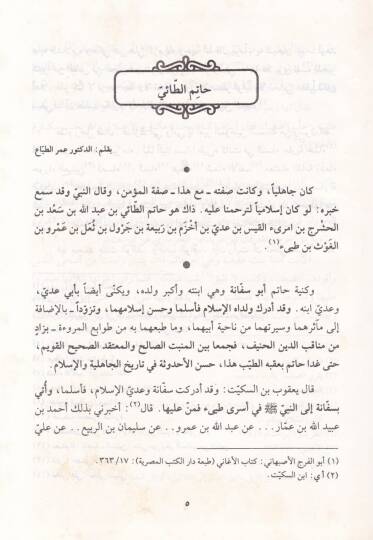 حاتِم الطّائيّ
بقلم: الدكتور عمر الطبّاع
كان جاهلياً، وكانت صفته ـ مع هذا ـ صفة المؤمن، وقال النبيّ وقد سمع
خبره: لو كان إسلامياً لترحمنا عليه. ذاك هو حاتم الطّائي بن عبد الله بن سَعْد بن
الحشْرج بن امرىء القيس بن عديّ بن أخْزَم بن رَبيعة بن جَرْول بن ثُعَل بن عَمْرو بن
الغَوْث بن طيىء(١).
وكنية حاتم أبو سفّانة وهي ابنته وأكبر ولده، ويكنّى أيضاً بأبي عديّ،
وعديّ ابنه. وقد أدرك ولداه الإسلام فأسلما وحسن إسلامهما، وتزوّدا ـ بالإضافة
إلى مآثرهما وسيرتهما من ناحية أبيهما، وما طبعهما به من طوابع المروءة ـ بزادٍ
من مناقب الدين الحنيف، فجمعا بين المنبت الصالح والمعتقد الصحيح القويم،
حتى غدا حاتم بعقبه الطيّب هذا، حسن الأحدوثة في تاريخ الجاهلية والإسلام.
قال يعقوب بن السكيّت: وقد أدركت سفّانة وعديّ الإسلام، فأسلما، وأُتي
بسفّانة إلى النبيّ ﷺ في أسرى طيىء فمنّ عليها. قال(٢): أخبرني بذلك أحمد بن
عبيد الله بن عمّار... عن عبد الله بن عمرو.. عن سليمان بن الربيع.. عن عليّ
(١) أبو الفرج الأصبهاني: كتاب الأغاني (طبعة دار الكتب المصرية): ٣٦٣/١٧.
(٢) أي: ابن السكيّت.
٥